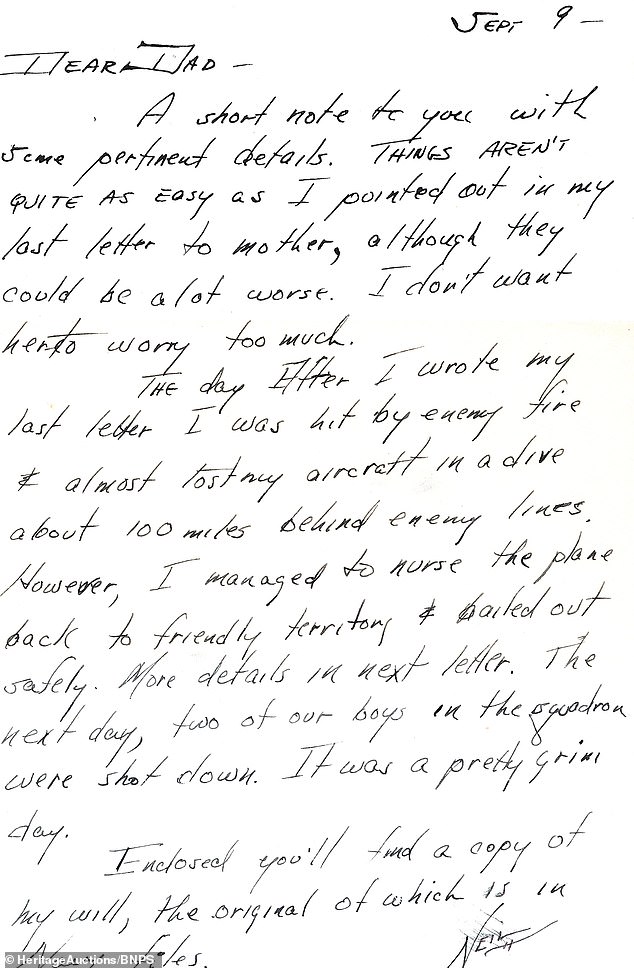 SEPT 9 —
DEAR DAD —
A short note to you with
some pertinent details. THINGS AREN'T
QUITE AS EASY as I pointed out in my
last letter to mother, although they
could be a lot worse. I don't want
her to worry too much.
THE day After I wrote my
last letter I was hit by enemy fire
& almost lost my aircraft in a dive
about 100 miles behind enemy lines.
However, I managed to nurse the plane
back to friendly territory & bailed out
safely. More details in next letter. The
next day, two of our boys in the squadron
were shot down. It was a pretty grim
day.
Enclosed you'll find a copy of
my will, the original of which is in
files.
NEIL
©HeritageAuctions/BNPS